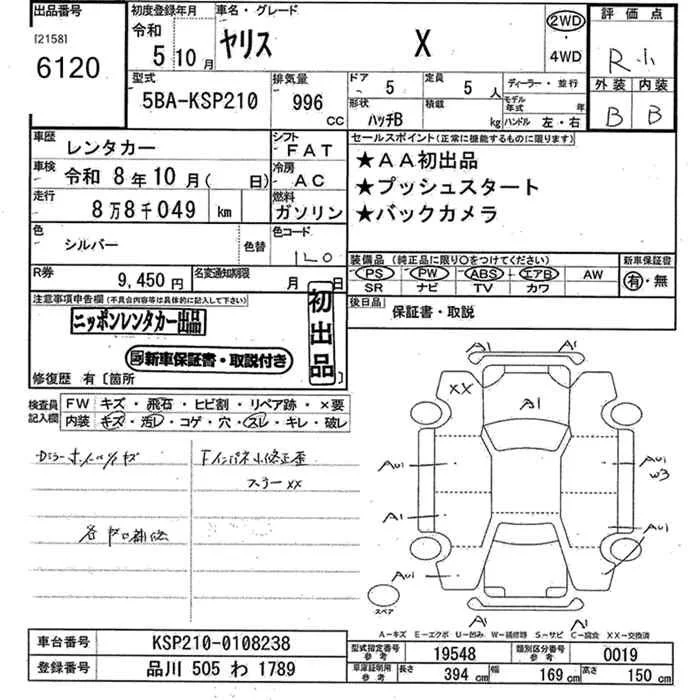 出品番号
[2158]
6120
初度登録年月
令和
5 10月
車名・グレード
ヤリス X
2WD
・
4WD
評価点
R 小
外装 内装
B B
型式
5BA-KSP210
排気量
996 cc
ドア
5
定員
5 人
形状
ハッチB
積載
kg
ディーラー・並行
モデル年式 年
ハンドル 左・右
車歴
レンタカー
シフト
FAT
車検
令和 8年 10月( 日)
冷房
AC
走行
8万8千049 km
燃料
ガソリン
色
シルバー
色替
色コード
1L0
R券
9,450円
名変通知期限
月 日
セールスポイント(正常に機能するものに限ります)
★AA初出品
★プッシュスタート
★バックカメラ
装備品 (純正品に限り○をつけてください)
PS PW ABS エアB AW
SR ナビ TV カワ
新車保証書
有・無
後日品
保証書・取説
注意事項申告欄(不具合内容等は具体的に記入して下さい)
ニッポンレンタカー出品
新車保証書・取説付き
初出品
修復歴 有〔箇所
検査員記入欄
FW キズ・飛石・ヒビ割・リペア跡・×要
内装 キズ・汚レ・コゲ・穴・スレ・キレ・破レ
スラーXX
A1 A1
XX
A1
AU1 AU1
W3
A1
AU1
AU1
A1 A1
スペア
A-キズ E-エクボ U-凹み W-補修跡 S-サビ C-腐食 XX-交換済
車台番号
KSP210-0108238
登録番号
品川 505 わ 1789
型式指定番号
参考
19548
類別区分番号
参考
0019
車庫証明用
参考
長さ 394 cm 幅 169 cm 高さ 150 cm